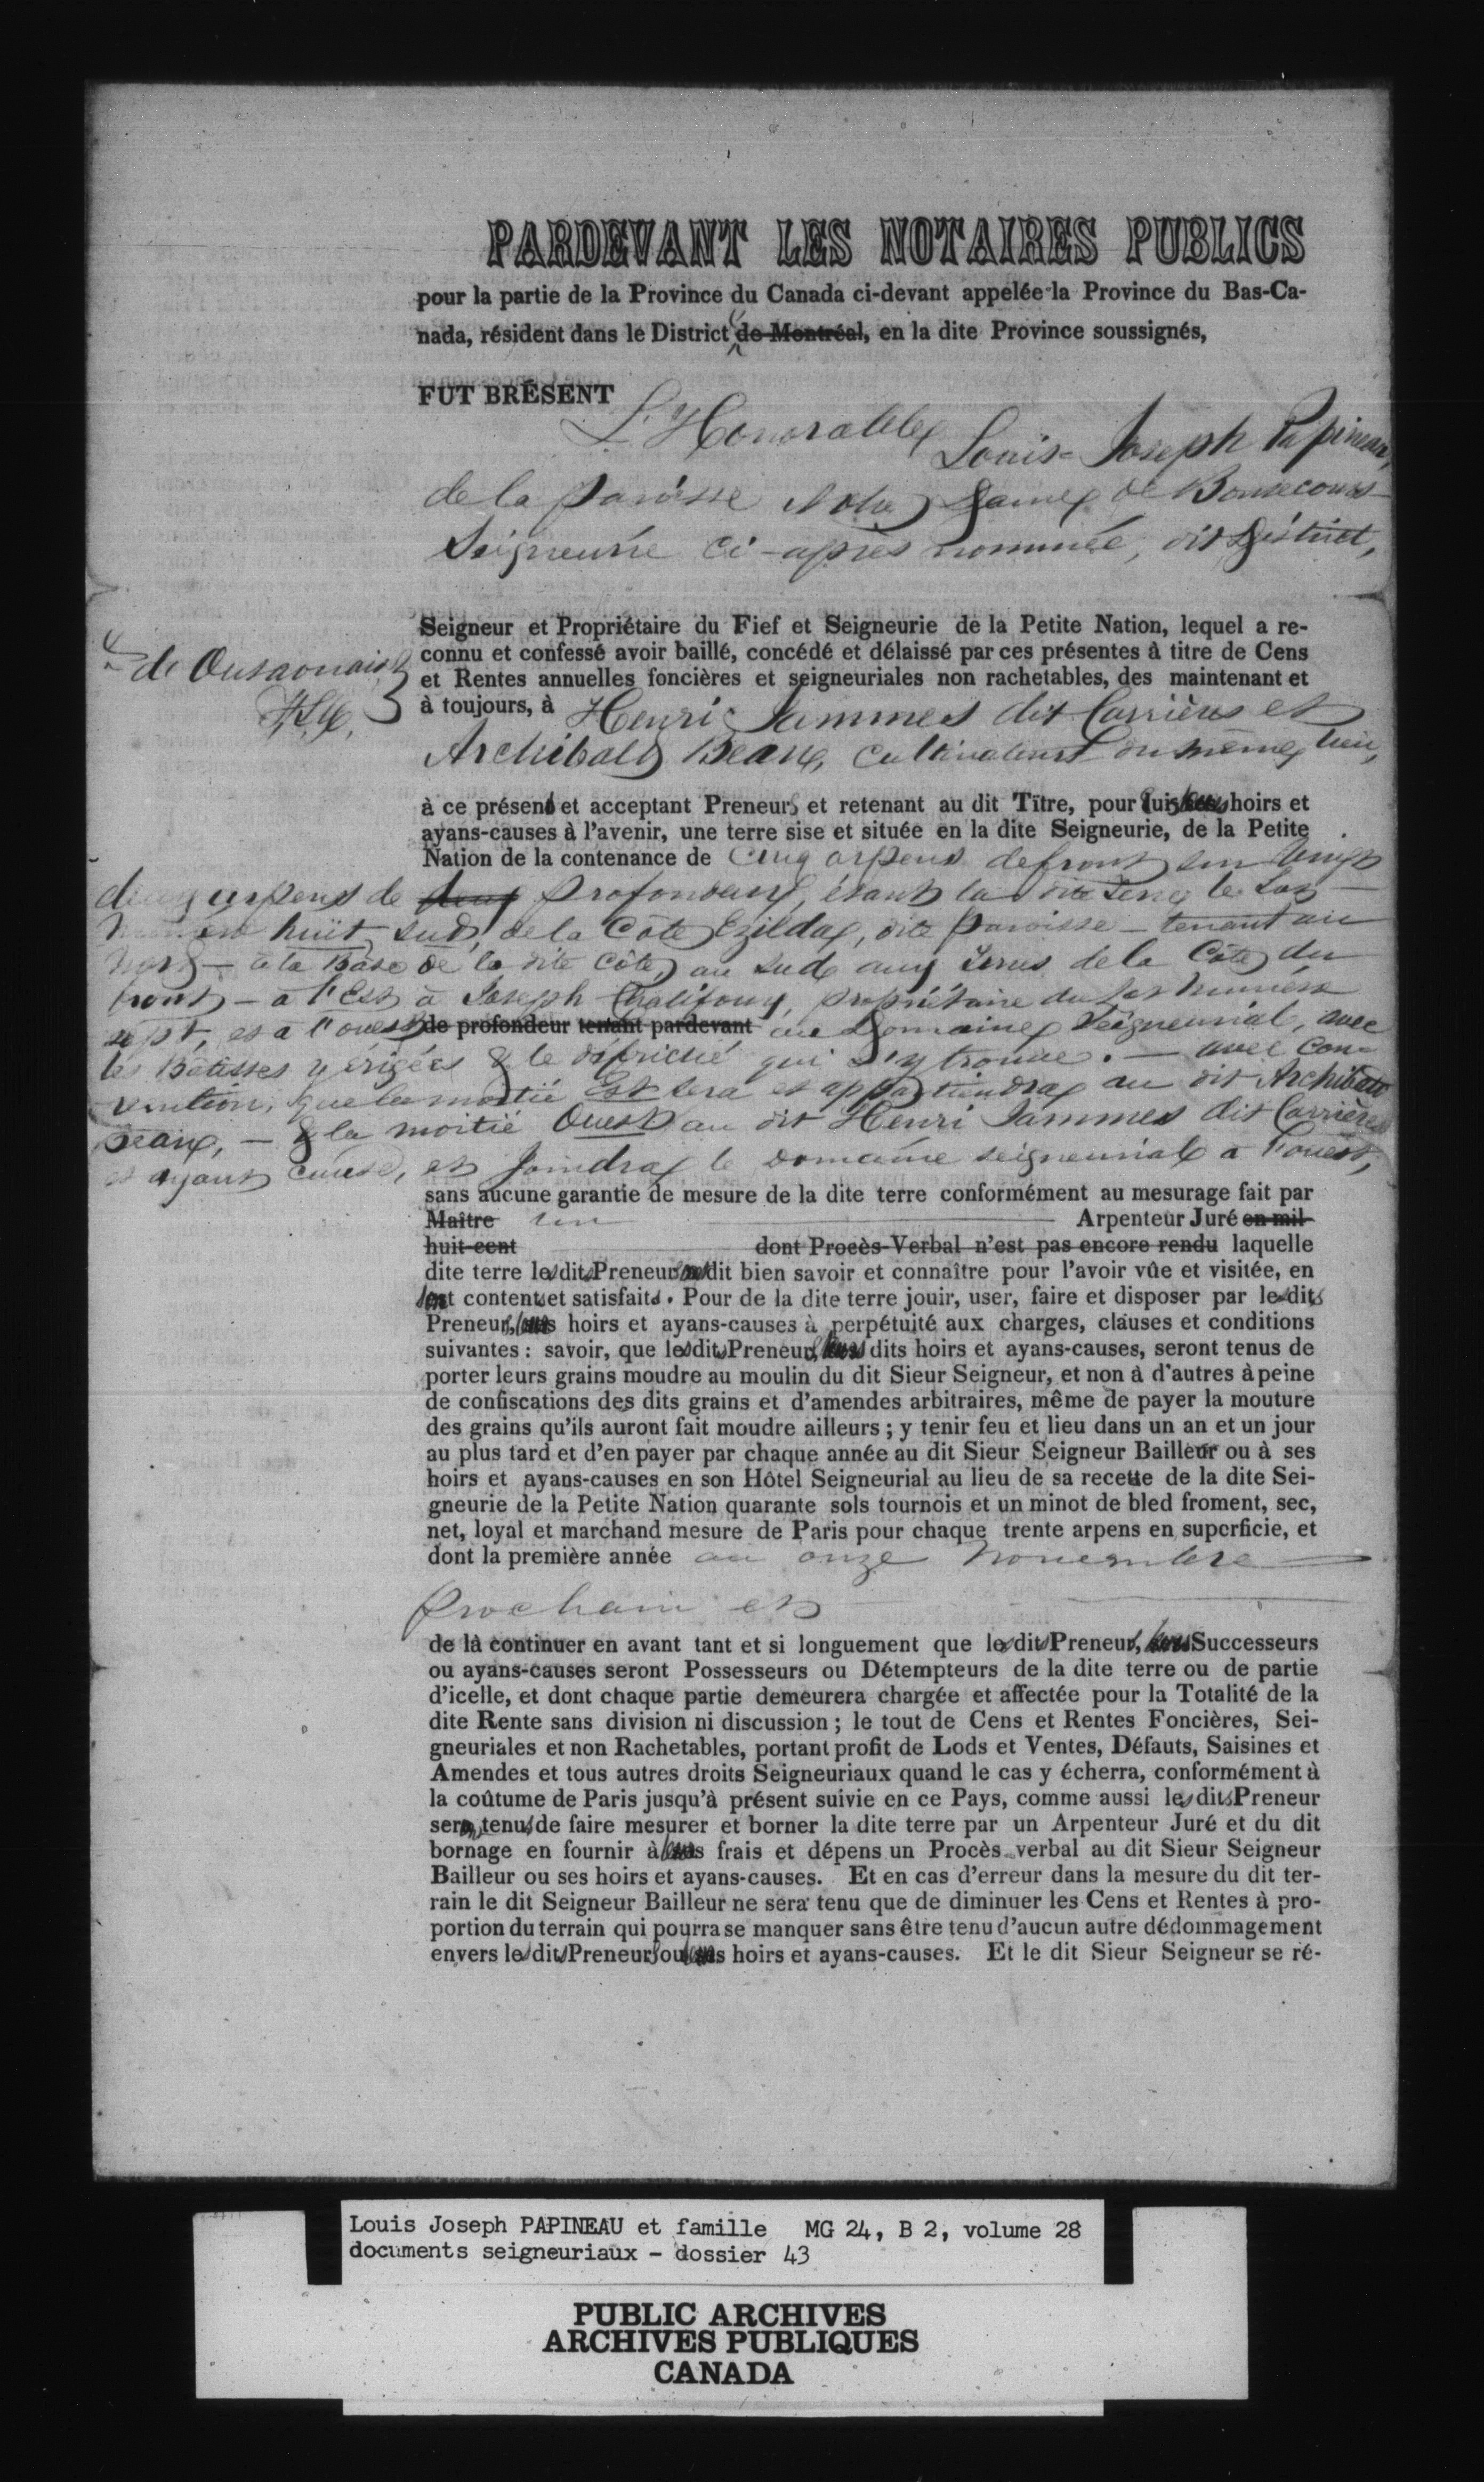 PARDEVANT LES NOTAIRES PUBLICS
pour la partie de la Province du Canada ci-devant appelée la Province du Bas-Ca-
nada, résident dans le District de Montréal, en la dite Province soussignés,
FUT BRÉSENT
L'Honorable Louis-Joseph Papineau,
de la paroisse Notre Dame de Bonsecours
Seigneurie ci-après nommée, dit District,
Seigneur et Propriétaire du Fief et Seigneurie de la Petite Nation, lequel a re-
connu et confessé avoir baillé, concédé et délaissé par ces présentes à titre de Cens
de Outaouais
et Rentes annuelles foncières et seigneuriales non rachetables, des maintenant et
à toujours, à Henri Jammes dit Carrières et
Archibald Beane, cultivateurs du même lieu,
à ce présent et acceptant Preneurs et retenant au dit Titre, pour hoirs et
ayans-causes à l'avenir, une terre sise et située en la dite Seigneurie, de la Petite
Nation de la contenance de cinq arpens de front sur vingt
arpens de profondeur, étant la dite terre le Lot
numéro huit sud, de la Côte Ezilda, dite paroisse – tenant au
nord – à la Base de la dite Côte, au sud aux terres de la Côte du
front – à l'Est à Joseph Chalifoux, propriétaire du Lot numéro
sept, et à l'ouest de profondeur tenant pardevant au Domaine Seigneurial, avec
les Bâtisses y érigées & le défriché qui s'y trouve. — avec con-
vention, que la moitié Est sera et appartiendra au dit Archibald
Beane, — & la moitié Ouest au dit Henri Jammes dit Carrières
et ayant cause, et joindra le domaine seigneurial à l'ouest,
sans aucune garantie de mesure de la dite terre conformément au mesurage fait par
Maître un Arpenteur Juré en mil
huit-cent dont Procès-Verbal n'est pas encore rendu laquelle
dite terre les dits Preneurs dit bien savoir et connaître pour l'avoir vûe et visitée, en
sont contents et satisfaits. Pour de la dite terre jouir, user, faire et disposer par les dits
Preneurs, leurs hoirs et ayans-causes à perpétuité aux charges, clauses et conditions
suivantes : savoir, que les dits Preneurs, leurs dits hoirs et ayans-causes, seront tenus de
porter leurs grains moudre au moulin du dit Sieur Seigneur, et non à d'autres à peine
de confiscations des dits grains et d'amendes arbitraires, même de payer la mouture
des grains qu'ils auront fait moudre ailleurs ; y tenir feu et lieu dans un an et un jour
au plus tard et d'en payer par chaque année au dit Sieur Seigneur Bailleur ou à ses
hoirs et ayans-causes en son Hôtel Seigneurial au lieu de sa recette de la dite Sei-
gneurie de la Petite Nation quarante sols tournois et un minot de bled froment, sec,
net, loyal et marchand mesure de Paris pour chaque trente arpens en superficie, et
dont la première année au onze novembre
prochain et
de là continuer en avant tant et si longuement que les dits Preneurs, leurs Successeurs
ou ayans-causes seront Possesseurs ou Détempteurs de la dite terre ou de partie
d'icelle, et dont chaque partie demeurera chargée et affectée pour la Totalité de la
dite Rente sans division ni discussion ; le tout de Cens et Rentes Foncières, Sei-
gneuriales et non Rachetables, portant profit de Lods et Ventes, Défauts, Saisines et
Amendes et tous autres droits Seigneuriaux quand le cas y écherra, conformément à
la coûtume de Paris jusqu'à présent suivie en ce Pays, comme aussi les dits Preneur
seront tenus de faire mesurer et borner la dite terre par un Arpenteur Juré et du dit
bornage en fournir à leurs frais et dépens un Procès-verbal au dit Sieur Seigneur
Bailleur ou ses hoirs et ayans-causes. Et en cas d'erreur dans la mesure du dit ter-
rain le dit Seigneur Bailleur ne sera tenu que de diminuer les Cens et Rentes à pro-
portion du terrain qui pourra se manquer sans être tenu d'aucun autre dédommagement
envers les dits Preneurs ou leurs hoirs et ayans-causes. Et le dit Sieur Seigneur se ré-
Louis Joseph PAPINEAU et famille MG 24, B 2, volume 28
documents seigneuriaux - dossier 43
PUBLIC ARCHIVES
ARCHIVES PUBLIQUES
CANADA